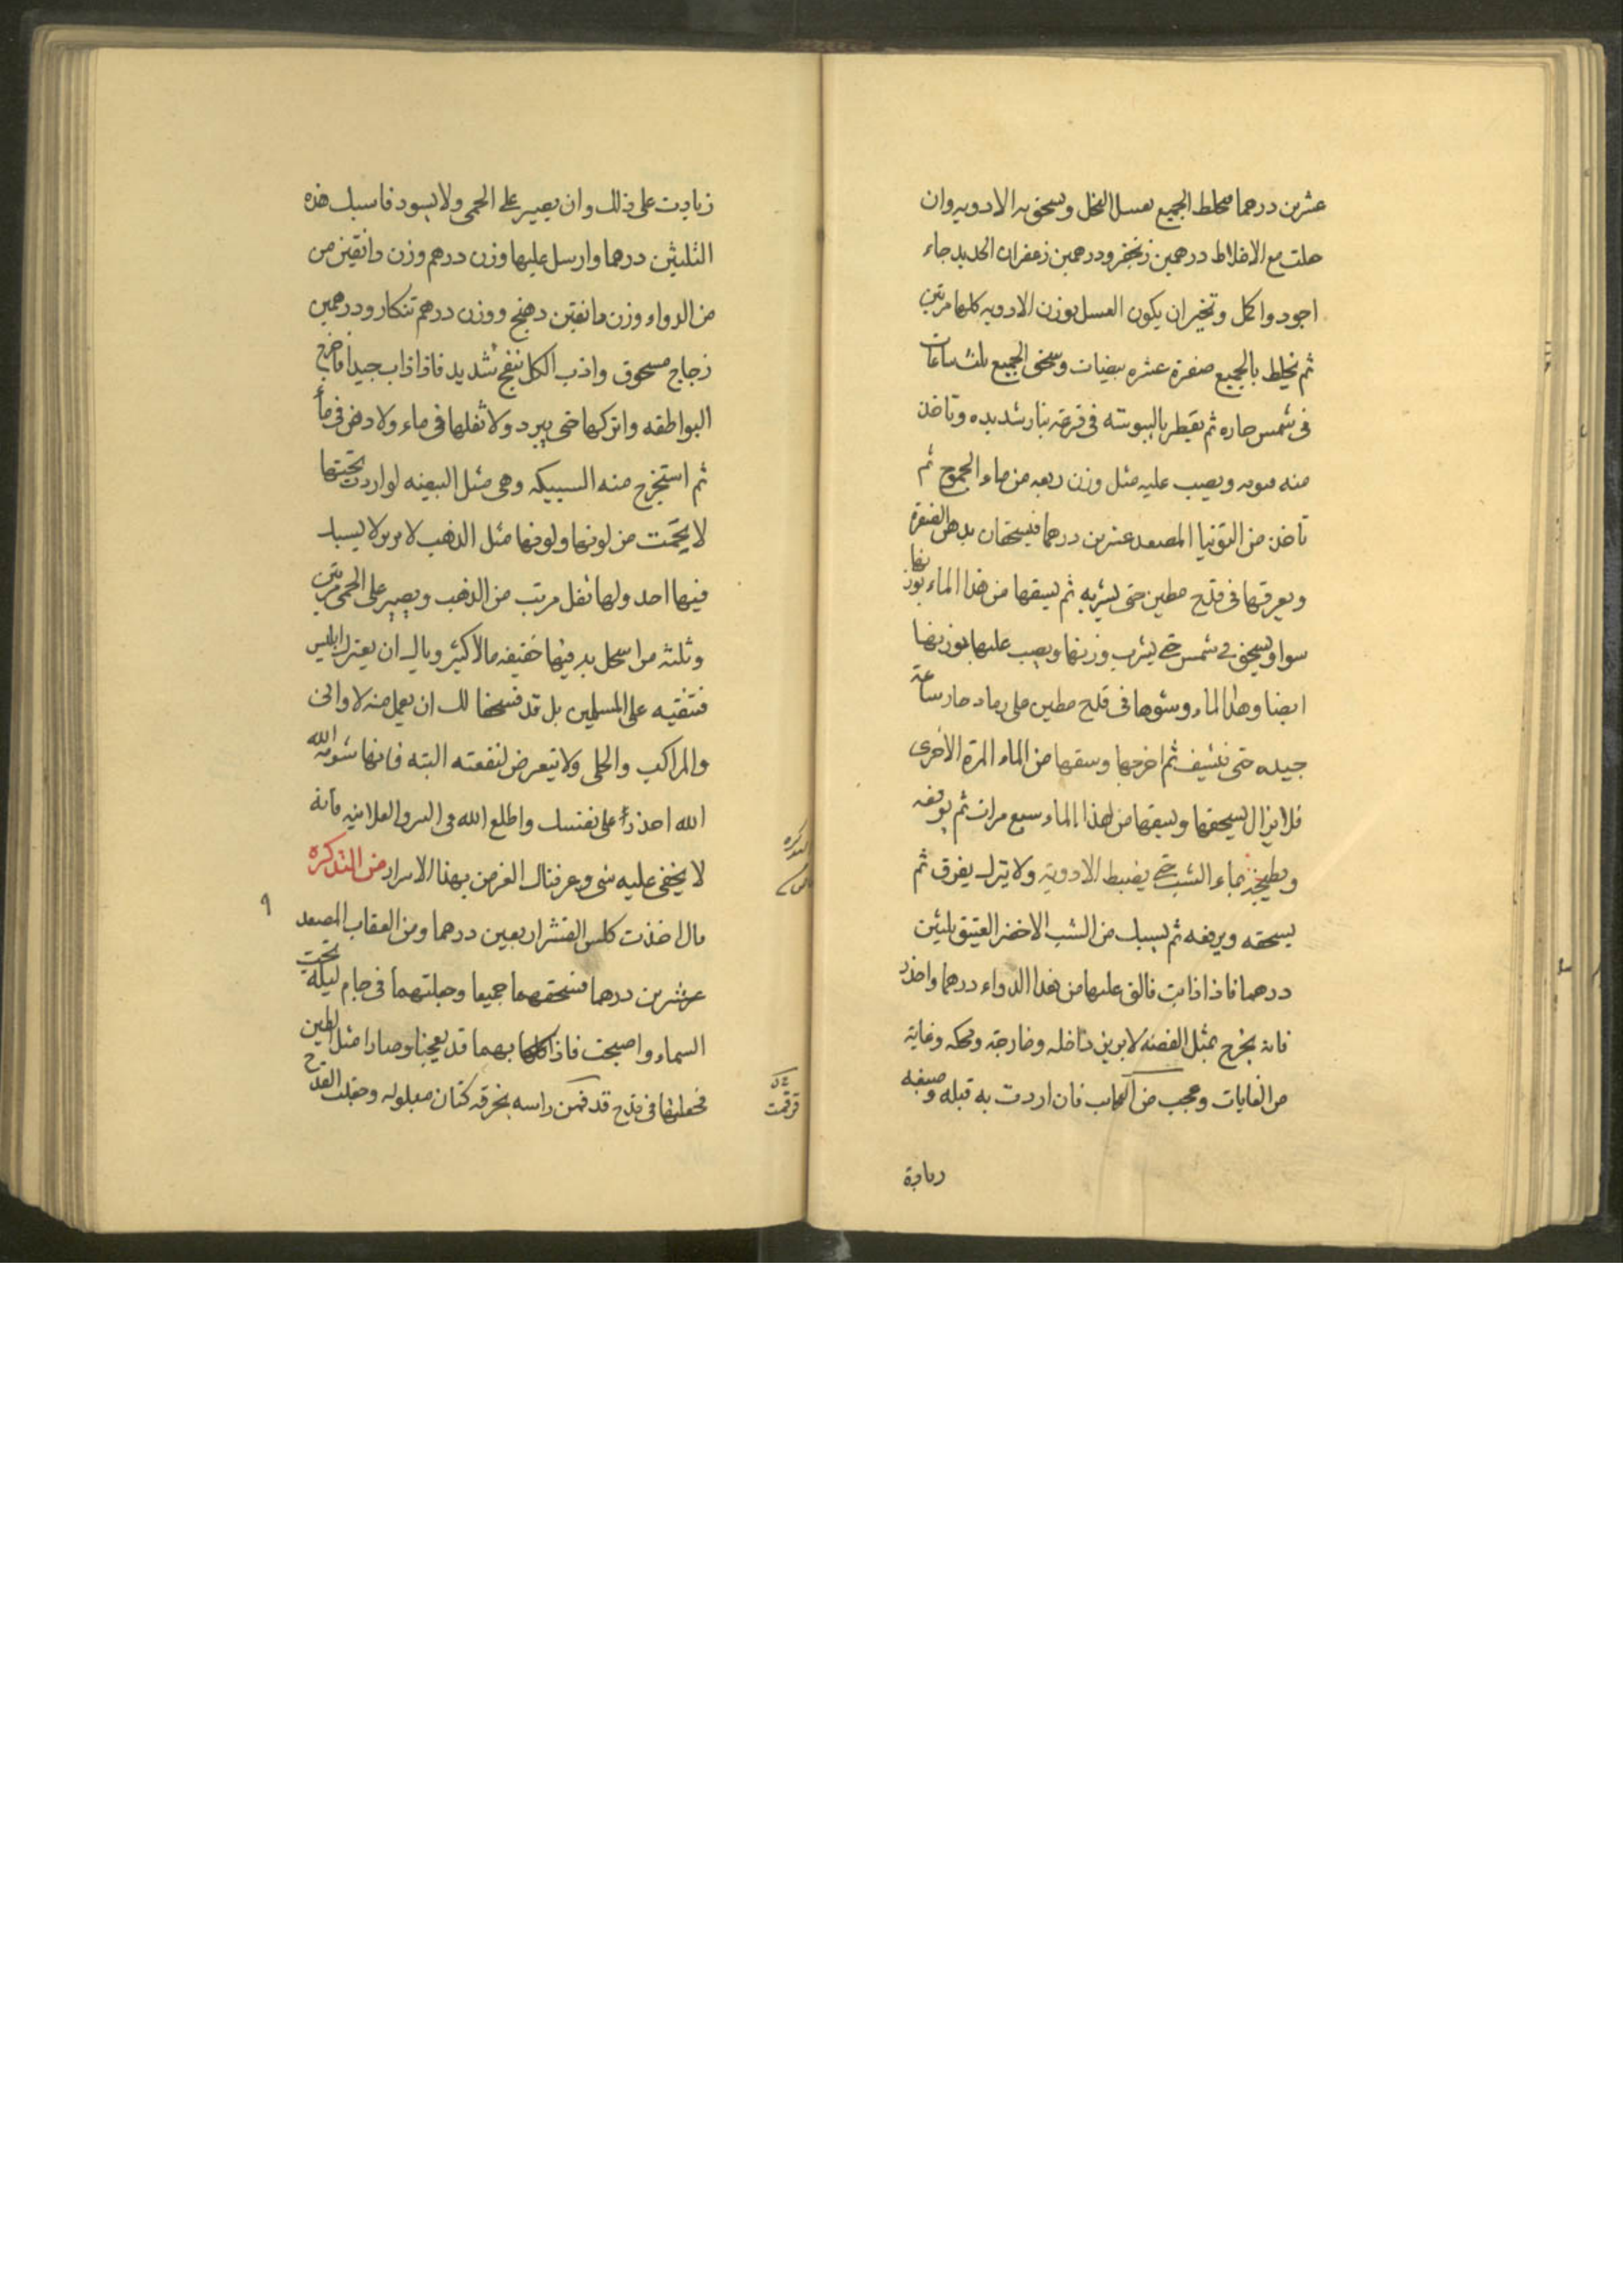 عشرين درهما مخلط الجميع بعسل النحل ويسحق به الادويه وان
جعلت مع الاخلاط درهمين زنجفر ودرهمين زعفران الحديد جاء
اجود واكمل وتخيران يكون العسل بوزن الادويه كلها مرتين
ثم يخلط بالجميع صفرة عشره بيضات وسحق الجميع ثلث ساعات
فى شمس حاره ثم يقطر باليبوسه فى قرعة بنار شديده وتاخذ
منه ويصب عليه مثل وزن ربعه من ماء ثم
تاخذ من التوتيا المصعد عشرين درهما فيسحقان بدهن الصفرة
ويعرقها فى قدح مطين حتى يشربه ثم يسقها من هذا الماء بوزنها
سوا ويسحق فى شمس حتى يشرب وزنها ويصب عليها بوزنها
ايضا وهذا الماء وشوها فى قدح مطين على رماد حار ساعة
جيده حتى تنشف ثم اخرجها وسقها من الماء المرة الاخرى
فلا يزال يسحقها ويسقها من هذا الماء سبع مرات ثم
ويطبخ بماء الشب حتى يضبط الادوية ولا يترك يفرق ثم
يسحقه ويرفعه ثم يسبك من الشب الاخضر العتيق ثلثين
درهما فاذا ذابت فالق عليها من هذا الدواء درهما واحذر
فانه يخرج بمثل الفضه داخله وخارجه ومحكه وغاية
من الغايات وعجب من العجايب فان اردت به قبله وصبغه
زيادة
زيادت على ذلك وان يصير على الحمى ولا يسود فاسبك هذه
الثلثين درهما وارسل عليها وزن درهم وزن دانقين من
من الدواء وزن دانقين دهنج ووزن درهم تنكار ودرهمين
زجاج مسحوق واذب الكل بنفخ شديد فاذا ذاب جيدا فاخرج
البواطقه واتركها حتى يبرد ولا تقلها فى ماء ولا دهن فى ماء
ثم استخرج منه السبيكه وهى مثل البيضه لو اردت
من لونها ولونها مثل الذهب
فيها احد ولها ثقل مرتب من الذهب ويصير على الحمى مرتين
وثلثه من اسحل بد فيها خفيفه مالا كثير وياك ان يغترك ابليس
فتنفقيه على المسلمين بل قد فسحنا لك ان يعمل منه الاوانى
والمراكب والحلى ولا تتعرض لنفقته البته فانها شومة الله
الله احذر على نفسك واطلع الله فى السر والعلانيه فانه
لا يخفى عليه شى وعرفناك الغرض بهذا الاسرار من التذكره
قال اخذت كلس القشر اربعين درهما ومن العقاب المصعد
عشرين درهما فسحقهما جميعا وجعلتهما فى جام ليلة تحت
السماء واصبحت فاذا بهما قد تعجنا وصارا مثل الطين
فجعلتها فى قدح قد راسه بخرقه كتان مبلوله وجعلت القدح